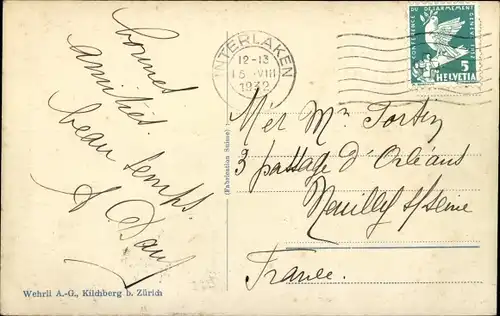 bonnes
amitiés.
beau temps.
INTERLAKEN
12-13
15.VIII
1932
CONFERENCE DU DESARMEMENT GENEVE 1932
5
HELVETIA
(Fabrication Suisse)
Mʳ Tortin
3 passage d'Orléans
Neuilly s/Seine
France.
Wehrli A.-G., Kilchberg b. Zürich